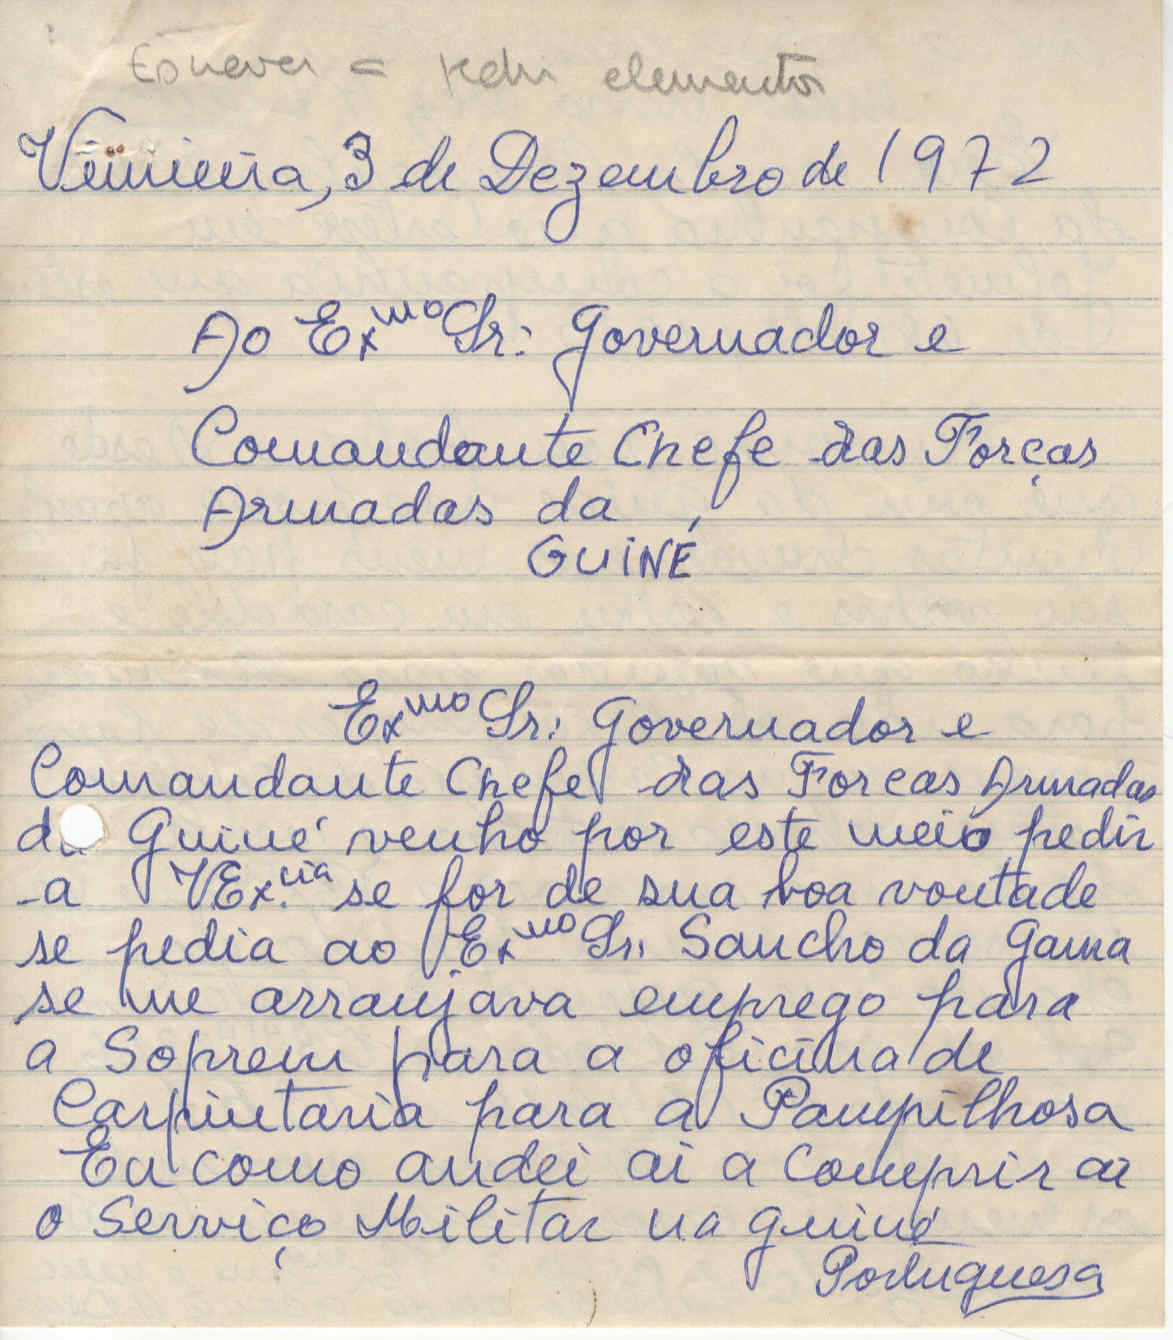 Escrever = pedir elementos
Vimieira, 3 de Dezembro de 1972
Ao Exmo Sr: Governador e
Comandante Chefe das Forças
Armadas da
GUINÉ
Exmo Sr: Governador e
Comandante Chefe das Forcas Armadas
da Guiné venho por este meio pedir
-a VEx.cia se for de sua boa vontade
se pedia ao Exmo Sr. Sancho da Gama
se me arranjava emprego para
a Soprem para a oficina de
Carpintaria para a Pampilhosa
Eu como andei ai a Comprir ai
o Serviço Militar na guiné
Portuguesa